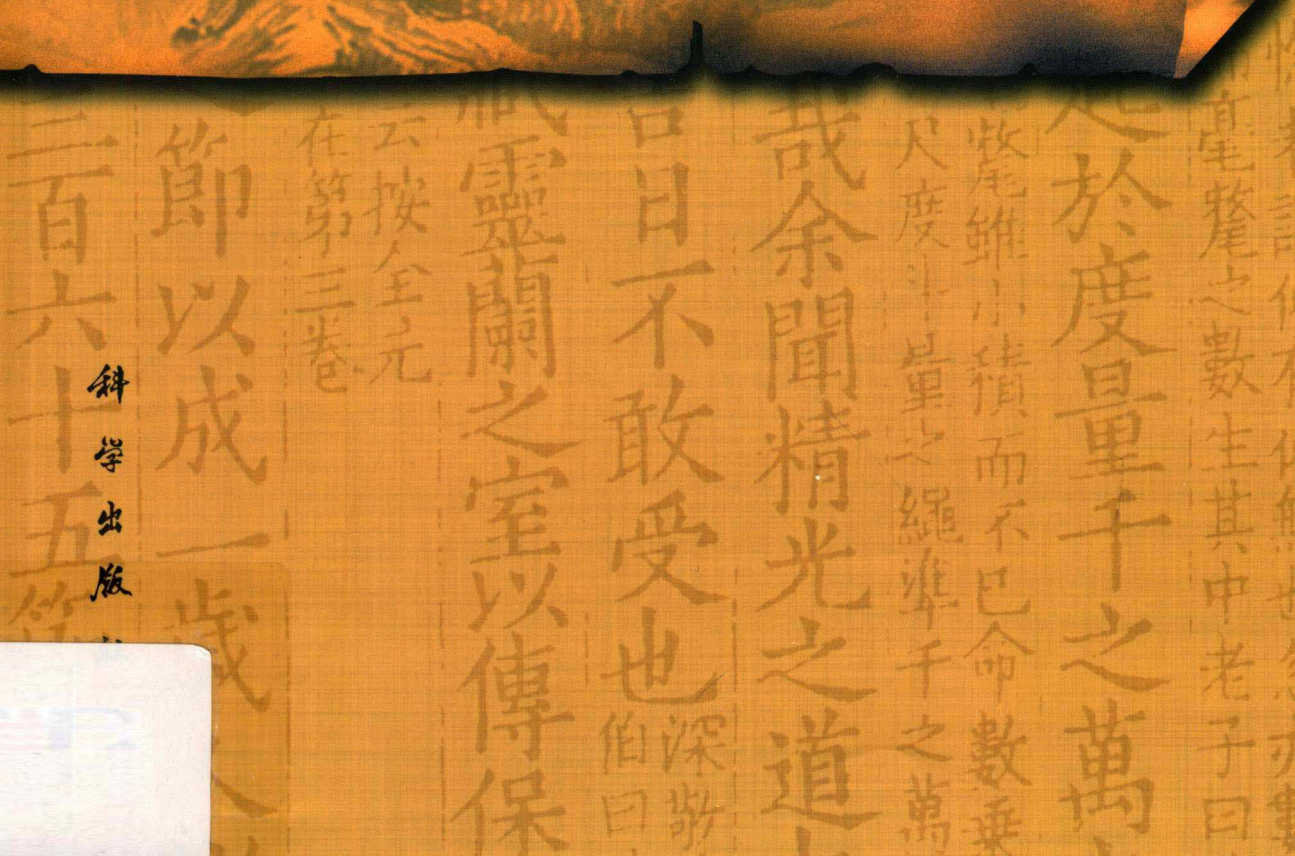 毫氂之數生其中老子曰
起於度量千之萬
氂雖小積而不已命數乘
尺度斗量之繩準千之萬
哉余聞精光之道
吉日不敢受也
深敬
伯曰
靈蘭之室以傳保
云按全元
在第三卷
節以成一歲人
三百六十五
科学出版